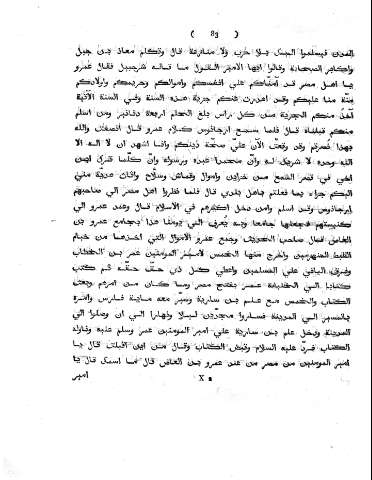 ( 83 )
المدن فيسلموا اليك بلا حرب ولا منازعة قال وتكلم معاذ بن جبل
واكابر الصحابة وقالوا ايها الامير القول ما قاله شرحبيل فقال عمرو
يا اهل مصر قد امنّاكم علي انفسكم واموالكم وحريمكم واولادكم
منّة منّا عليكم وقد اهدرت عنكم جزية هذه السنة وفي السنة الآتية
آخذ منكم الجزية من كل راس بلغ الحلم اربعة دنانير ومن اسلم
منكم قبلناه قال فلما سمع ارجانوس كلام عمرو قال انصفت والله
بهذا نصرتم وقد وقعت الآن علي صحّة دينكم وانا اشهد ان لا اله الا
الله وحده لا شريك له وانّ محمدا عبده ورسوله وانّ كلّما ترك ابن
اخي في قصر الشمع من خزاين واموال وقماش وسلاح واثاث هدية منّي
اليكم جزاء بما فعلتم باهل بلدي قال فلما نظروا اهل مصر الي صاحبهم
ارجانوس وقد اسلم وامن دخل اكثرهم في الاسلام قال وعمد عمرو الي
كنيستهم فجعلها جامعا وبه يُعرف الي يومنا هذا بجامع عمرو بن
العاص قال صاحب الحديث وجمع عمرو الاموال التي اخذها من خيام
القبط المنهزمين واخرج منها الخمس لامير المؤمنين عمر بن الخطاب
وفرّق الباقي علي المسلمين واعطي كل ذي حق حقه ثم كتب
كتابا الي الخليفة عمر بفتح مصر وما كان من امرهم وبعث
الكتاب والخمس مع علم بن سارية وسيّر معه ماية فارس وامره
بالمسير الي المدينة فساروا مجدّين ليلا ونهارا الي ان وصلوا الي
المدينة ودخل علم بن سارية علي امير المؤمنين عمر وسلم عليه وناوله
الكتاب فردّ عليه السلام وقبض الكتاب وقال من اين اقبلت قال يا
امير المؤمنين من مصر من عند عمرو بن العاص قال ما اسمك قال يا
امير
X 2